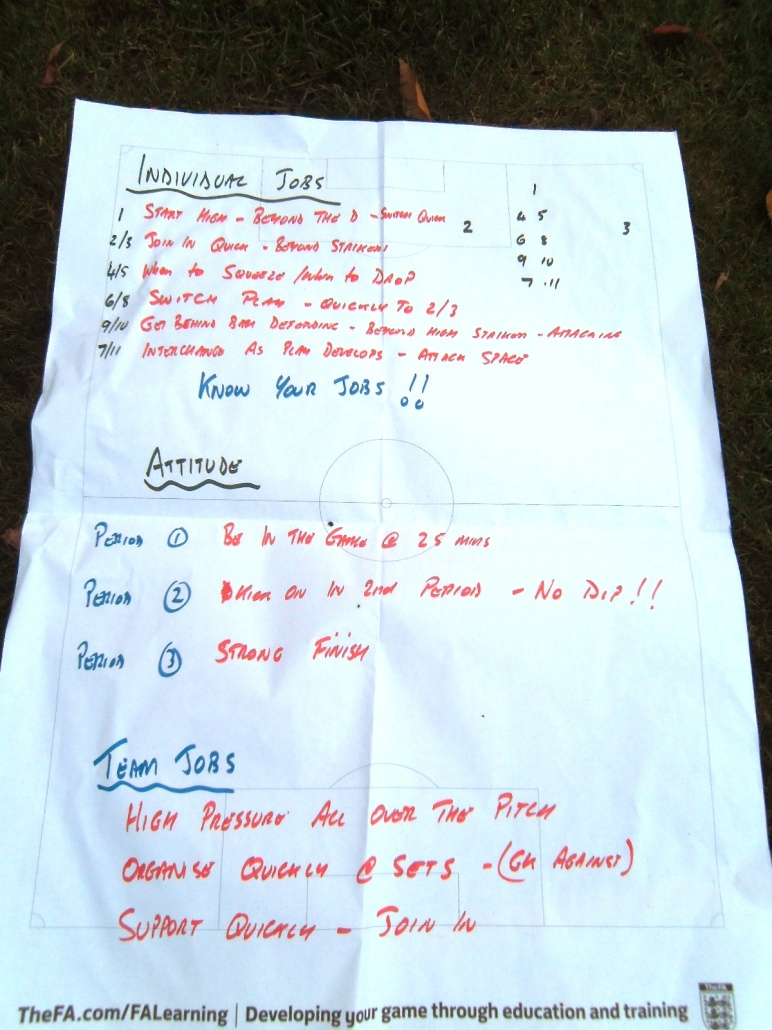 INDIVIDUAL JOBS
1 START HIGH - BEYOND THE D - SWITCH QUICK
2/3 JOIN IN QUICK - BEYOND STRIKERS
4/5 WHEN TO SQUEEZE / WHEN TO DROP
6/8 SWITCH PLAY - QUICKLY TO 2/3
9/10 GET BEHIND BALL DEFENDING - BEYOND HIGH STRIKER - ATTACKING
7/11 INTERCHANGE AS PLAY DEVELOPS - ATTACK SPACE
KNOW YOUR JOBS !!
1
4 5
2 3
6 8
9 10
7 .11
ATTITUDE
PERIOD 1 BE IN THE GAME @ 25 MINS
PERIOD 2 KICK ON IN 2nd PERIOD - NO DIP!!
PERIOD 3 STRONG FINISH
TEAM JOBS
HIGH PRESSURE ALL OVER THE PITCH
ORGANISE QUICKLY @ SETS - (GK AGAINST)
SUPPORT QUICKLY - JOIN IN
TheFA.com/FALearning | Developing your game through education and training
TheFA